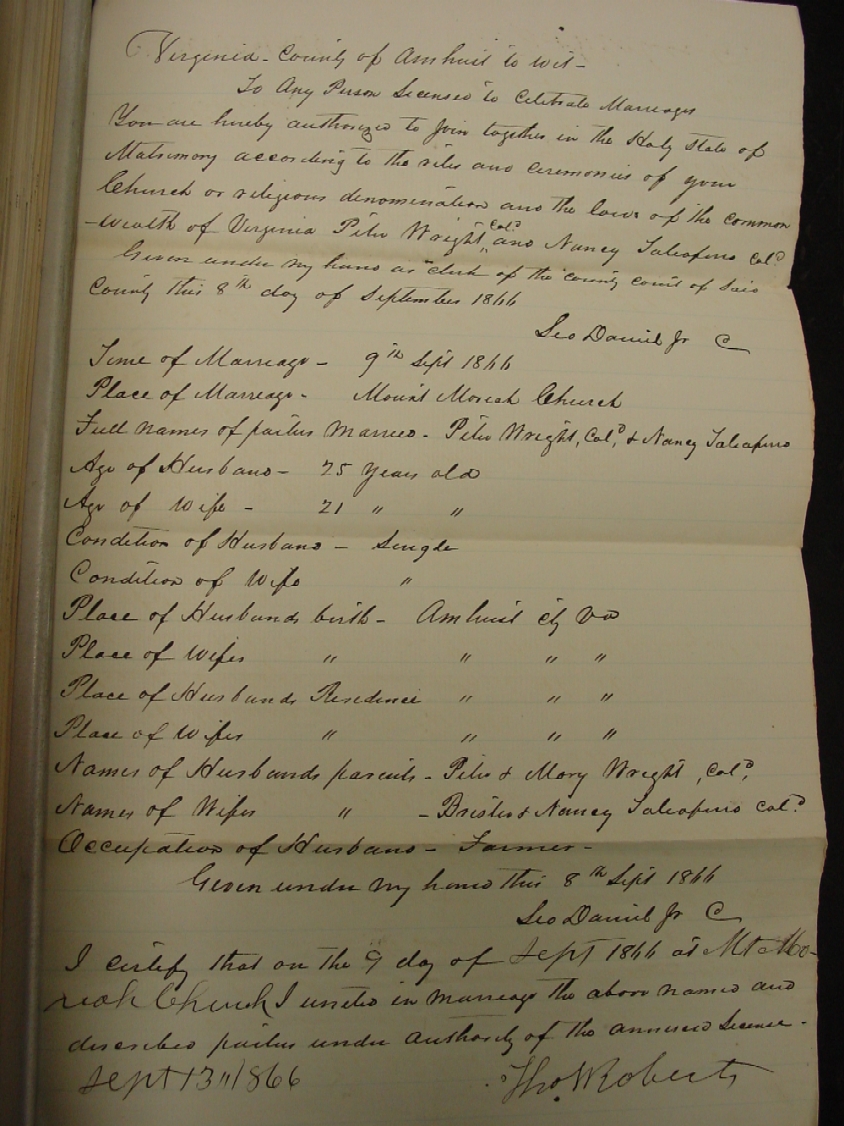 Virginia - County of Amherst to wit -
To Any Person Licensed to Celebrate Marreages
You are hereby authorized to Join together in the Holy State of
Matrimony according to the rites and ceremonies of your
Church or religious denomination and the laws of the common
-wealth of Virginia Peter Wright, Cold and Nancy Taliaferro Cold
Given under my hand as clerk of the County Court of said
County this 8th day of September 1866
Geo Daniel Jr C
Time of Marreage - 9th Sept 1866
Place of Marreage - Mount Moriah Church
Full names of parties Married - Peter Wright, Cold, & Nancy Taliaferro
Age of Husband - 25 Years old
Age of Wife - 21 " "
Condition of Husband - Single
Condition of Wife "
Place of Husbands birth - Amherst cty Va
Place of Wifes " " " "
Place of Husbands Residence " " "
Place of Wifes " " " "
Names of Husbands parents - Peter & Mary Wright, Cold,
Names of Wifes " - Brister & Nancy Taliaferro Cold
Occupation of Husband - Farmer -
Given under my hand this 8th Sept 1866
Geo Daniel Jr C
I certify that on the 9 day of Sept 1866 at Mt Mo-
riah Church I united in marreage the above named and
described parties under authority of the annexed License -
Sept 13 " 1866 Tho. W Roberts